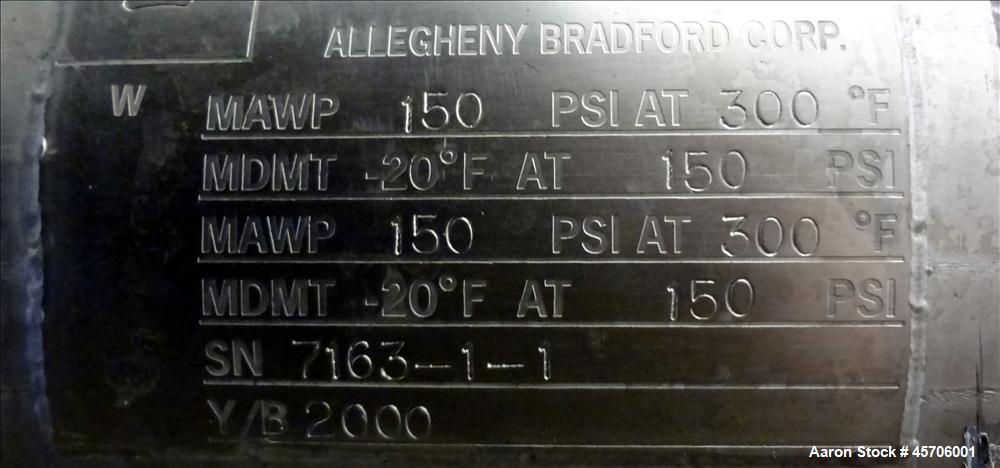 ALLEGHENY BRADFORD CORP.
W
MAWP 150 PSI AT 300 °F
MDMT -20°F AT 150 PSI
MAWP 150 PSI AT 300 °F
MDMT -20°F AT 150 PSI
SN 7163-1-1
Y/B 2000
Aaron Stock # 45706001